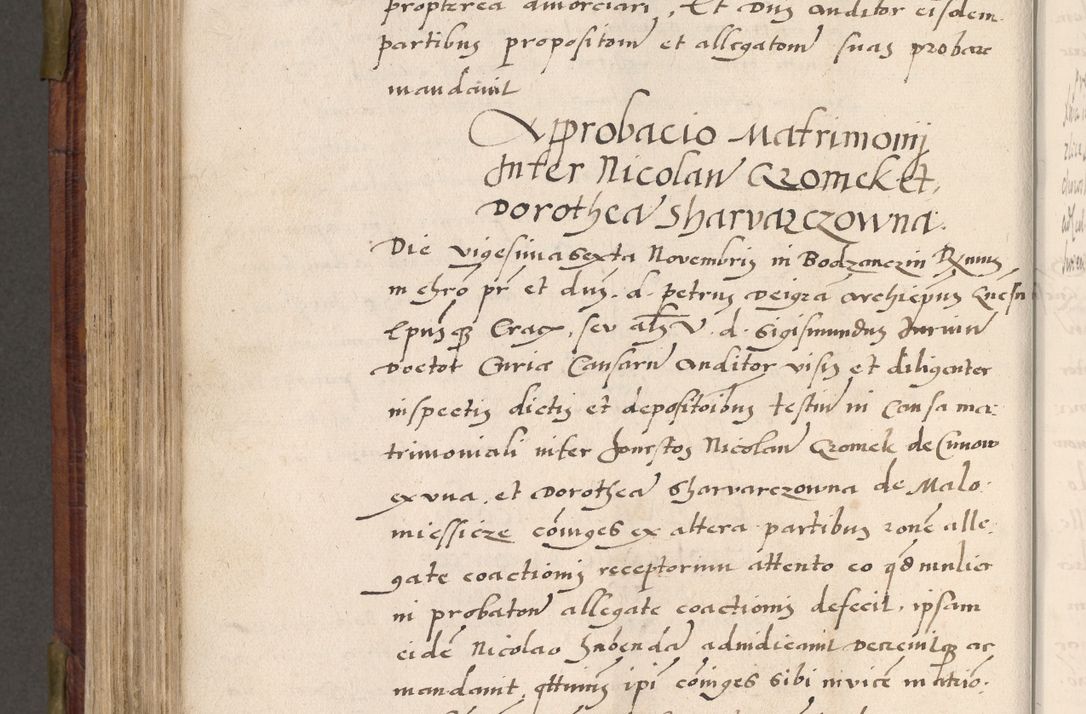 propterea divorciari, Et Dns Auditor eisdem
partibus propositom et allegatom suas probare
mandavit
Approbacio Matrimonij
Inter Nicolau Gromek et
Dorothea Sharvarczowna.
Die vigesima sexta Novembris in Bodzanczin Rmus
in chro pr et dns. d. petrus Dei gra Archiepus Gnesn
Epusq Crac., seu d. Sigismundus
Doctor Curie Causaru Auditor visis et diligenter
inspectis dictis et depositoibus testiu in Causa ma
trimoniali inter honestos Nicolau Gromek de Cunow
ex una, et Dorothea Sharvarczowna de Malo
miessicze coniuges ex altera partibus rone alle
gate coactionis receptorum attento eo qd mulier
in probatone allegate coactionis defecit, ipsam
eide Nicolao habenda adiudicavit Decrevitq ac
mandavit, ipi coniuges sibi invice